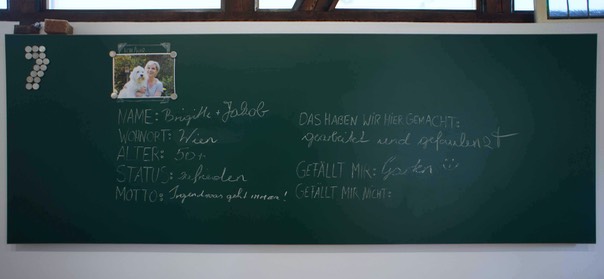 7
NAME: Brigitte + Jakob
WOHNORT: Wien
ALTER: 50+
STATUS: zufrieden
MOTTO: Irgendwas geht immer!
DAS HABEN WIR HIER GEMACHT:
gearbeitet und gefaulenzt
GEFÄLLT MIR: Garten :)
GEFÄLLT MIR NICHT: